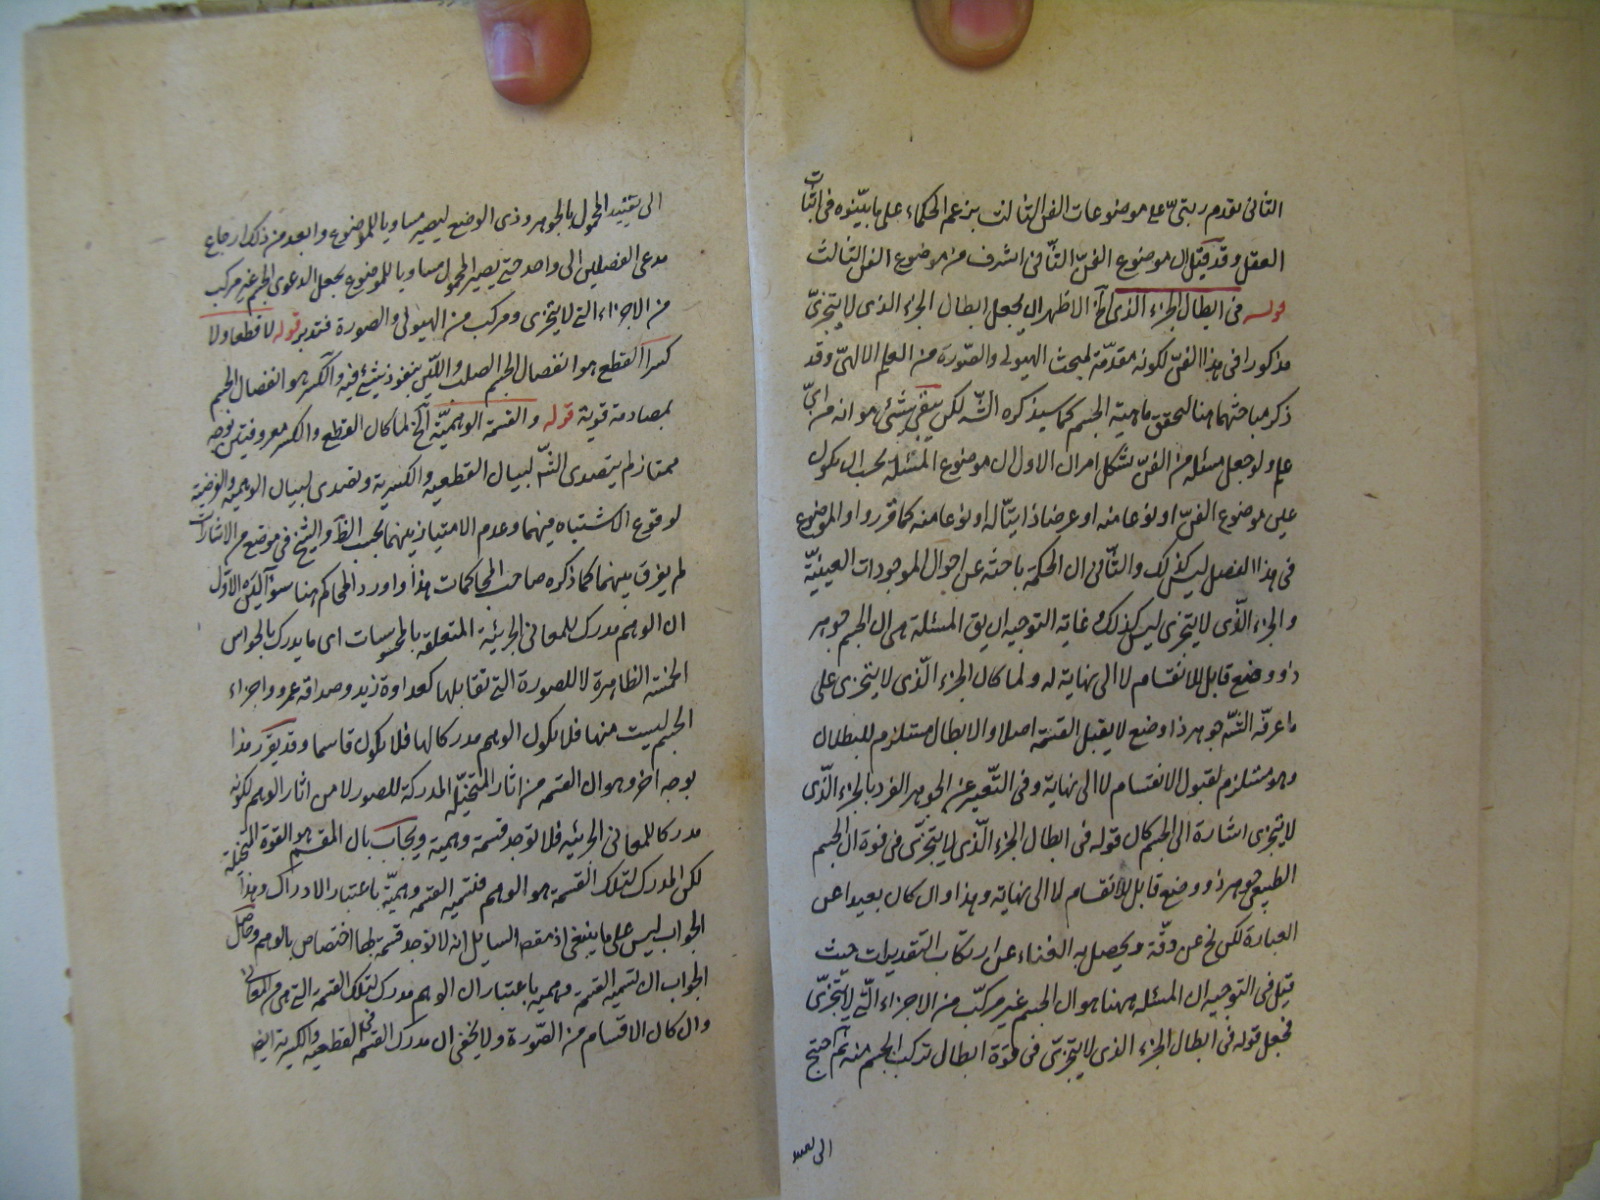 الثانى تقدم رتبى على موضوعات الفن الثالث بزعم الحكماء على ما بيّنوه فى اثبات
العقل وقد قيل ان موضوع الفنّ الثّانى اشرف من موضوع الفن الثالث
قوله فى ابطال الجزء الذى الخ الاظهر ان يجعل ابطال الجزء الذى لا يتجزىّ
مذكورا فى هذا الفنّ لكونه مقدّمة لمبحث الهيولى والصّورة من العلم الالهىّ وقد
ذكر مباحثهما هنا لتحقق ماهية الجسم كما سيذكره الشّه لكن بقى شئ هو انه من اىّ
علم ولو جعل مسئلة من الفنّ يشكل امران الاول ان موضوع المسئلة يجب ان يكون
عين موضوع الفنّ او نوعا منه او عرضا ذاتيّا له او نوعا منه كما قرروا والموضوع
فى هذا الفصل ليس كذلك والثّانى ان الحكمة باحثة عن احوال الموجودات العينيّة
والجزء الّذى لا يتجزى ليس كذلك وغاية التوجيه ان يق المسئلة هى ان الجسم جوهر
ذو وضع قابل للانقسام لا الى نهاية له ولما كان الجزء الّذى لا يتجزى على
ما عرفّه الشّه جوهر ذا وضع لا يقبل القسمة اصلا والابطال مستلزم للبطلان
وهو مستلزم لقبول الانقسام لا الى نهاية وفى التّعبير عن الجوهر الفرد بالجزء الّذى
لا يتجزى اشارة الى الجسم كان قوله فى ابطال الجزء الّذى لا يتجزّى فى قوة ان الجسم
الطبيعى جوهر ذو وضع قابل للانقسام لا الى نهاية وهذا وان كان بعيدا عن
العبارة لكن لخ عن دقّة ويحصل به الغناء عن ارتكاب التقديرات حيث
قيل فى التوجيه ان المسئلة ههنا هو ان الجسم غير مركّب من الاجزاء الّتى لا يتجزّى
فجعل قوله فى ابطال الجزء الذى لا يتجزىّ فى قوّة ابطال تركب الجسم منه ثم احتج
الى تقييد
الى تقييد المحمول بالجوهر وذى الوضع ليصير مساويا للموضوع وابعد من ذلك ارجاع
مدعى الفصلين الى واحد حتى يصير المحمول مساويا للموضوع بجعل الدعوى الجسم غير مركب
من الاجزاء التى لا يتجزى ومركب من الهيولى والصورة فتدبر قوله لا قطعا ولا
كسرا القطع هو انفصال الجسم الصلب واللّيّن بنفوذ شئ فيه والكسر هو انفصال الجسم
بمصادمة قوية قوله والقسمة الوهميّة الخ لما كان القطع والكسر معروفين بوجه
ممتاز لم يتصدى الشّه لبيان القطعية والكسرية وتصدى لبيان الوهمية والفرضية
لوقوع الاشتباه فيهما وعدم الامتياز بينهما بحسب الظّ والشيخ فى موضع من الاشارات
لم يفرق بينهما كما ذكره صاحب المحاكمات هذا واورد المحاكم هنا سؤالين الاوّل
ان الوهم مدرك للمعانى الجزئية المتعلقة بالمحسوسات اى ما يدرك بالحواس
الخمسة الظاهرة لا للصورة التى تقابلها كعداوة زيد وصداقة عمرو واجزاء
الجسم ليست منها فلا يكون الوهم مدركا لها فلا يكون قاسما وقد يقرر هذا
بوجه اخر وهو ان القسمة من اثار المتخيّلة المدركة للصور لا من اثار الوهم لكونه
مدركا للمعانى الجزئيه فلا توجد قسمة وهمية ويجاب بان المقسم هو القوة المتخيلة
لكن المدرك لتلك القسمة هو الوهم فتسمية القسمة وهميّة باعتبار الادراك وهذا
الجواب ليس على ما ينبغى اذ مقصد السايل انه لا توجد قسمة لها اختصاص بالوهم وحاصل
الجواب ان تسمية القسمة وهمية باعتبار ان الوهم مدرك لتلك القسمة التى هى من المعانى
وان كان الاقسام من الصّورة ولا يخفى ان مدرك القسمة القطعية والكسرية ايضا